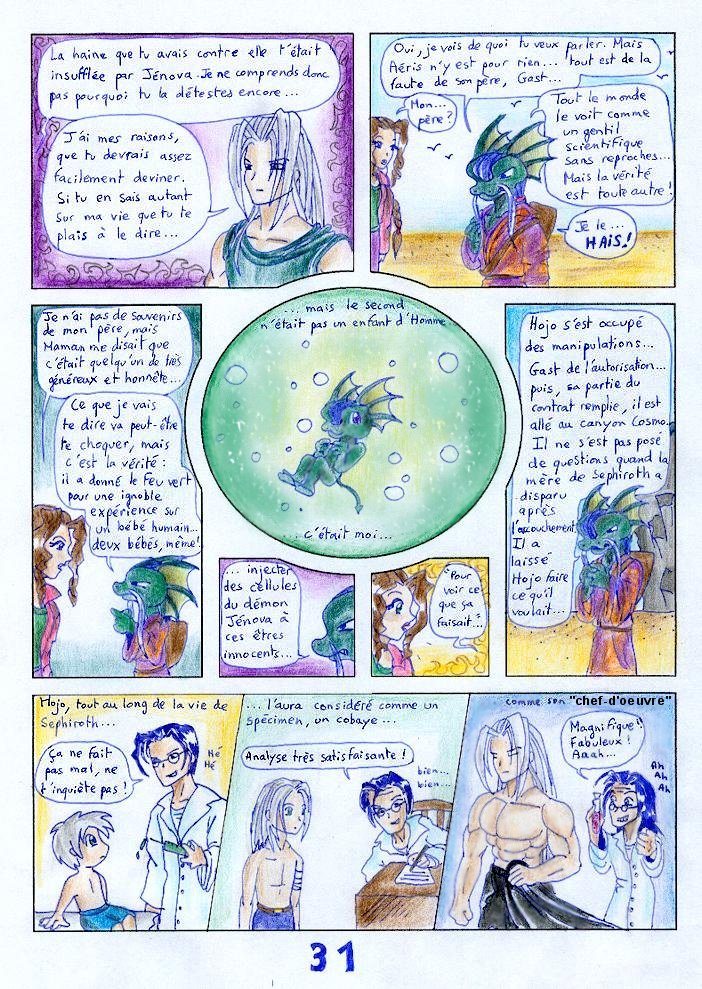 La haine que tu avais contre elle t'était
insufflée par Jénova. Je ne comprends donc
pas pourquoi tu la détestes encore...
J'ai mes raisons,
que tu devrais assez
facilement deviner.
Si tu en sais autant
sur ma vie que tu te
plais à le dire...
Oui, je vois de quoi tu veux parler. Mais
Aéris n'y est pour rien... tout est de la
faute de son père, Gast...
Mon...
père?
Tout le monde
le voit comme
un gentil
scientifique
sans reproches...
Mais la vérité
est toute autre!
Je le...
HAIS!
Je n'ai pas de souvenirs
de mon père, mais
Maman me disait que
c'était quelqu'un de très
généreux et honnête...
Ce que je vais
te dire va peut-être
te choquer, mais
c'est la vérité:
il a donné le feu vert
pour une ignoble
expérience sur
un bébé humain...
deux bébés, même!
...mais le second
n'était pas un enfant d'Homme...
...c'était moi...
... injecter
des cellules
du démon
Jénova à
ces êtres
innocents...
"Pour
voir ce
que ça
faisait..."
Hojo s'est occupé
des manipulations...
Gast de l'autorisation...
puis, sa partie du
contrat remplie, il est
allé au canyon Cosmo.
Il ne s'est pas posé
de questions quand la
mère de Sephiroth a
disparu
après
l'accouchement
Il a
laissé
Hojo faire
ce qu'il
voulait...
Hojo, tout au long de la vie de
Sephiroth...
Ça ne fait
pas mal, ne
t'inquiète pas!
Hé
Hé
... l'aura considéré comme un
spécimen, un cobaye...
Analyse très satisfaisante!
bien...
bien...
comme son "chef-d'oeuvre"
Magnifique!
Fabuleux!
Aaah...
Ah
Ah
Ah
31